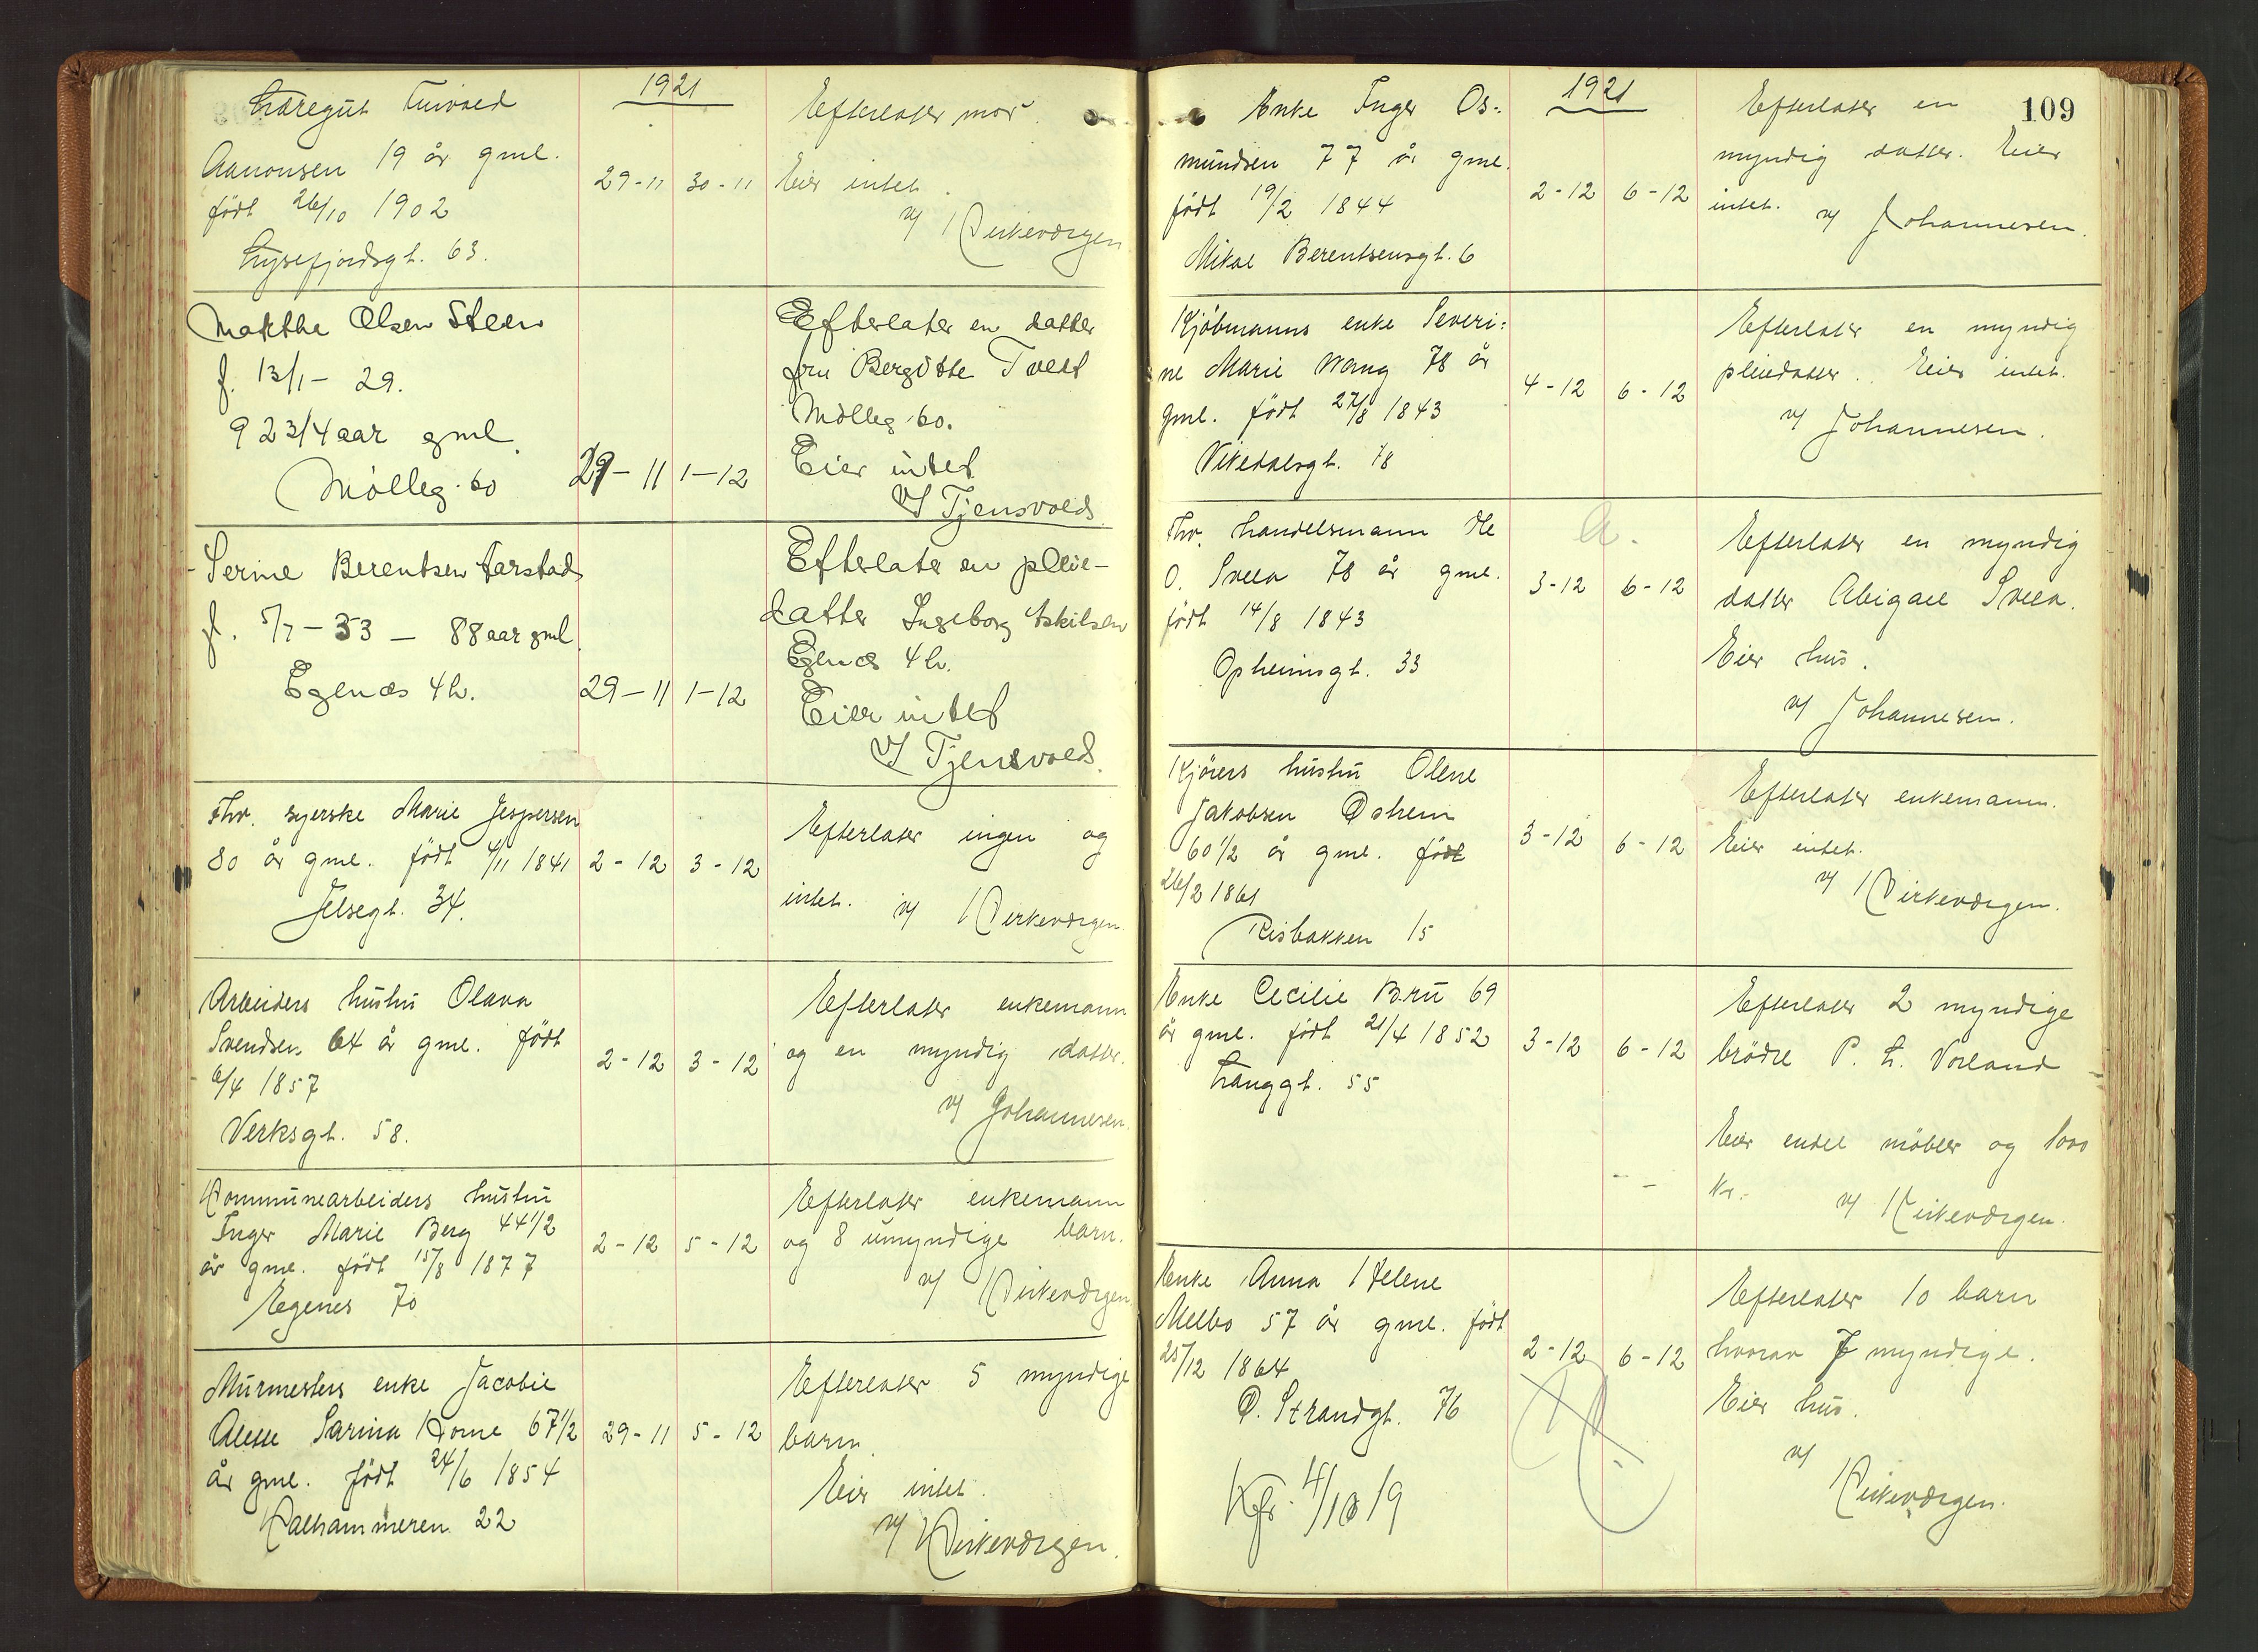 1921
Læregut Tinvald
Aanonsen 19 år gml.
født 26/10 1902
Lysefjordsgt. 63.
29-11 30-11
Efterlater mor.
Eier intet.
v/ Kirkeværgen
Marthe Olsen Steen
f. 13/1 - 29.
92 3/4 aar gml.
Mølleg. 60
29-11 1-12
Efterlater en datter
fru Bergitte Tveit
Mølleg. 60.
Eier intet
v/ Tjensvold
Serine Berentsen Aarstad
f. 5/7 - 33 - 88 aar gml.
Egenæs 4 b.
29-11 1-12
Efterlater en pleie-
datter Ingeborg Eskilsen
Egenæs 4 b.
Eier intet
v/ Tjensvold.
Fhv. syerske Marie Jespersen
80 år gml. født 4/11 1841
Jelsegt. 34.
2-12 3-12
Efterlater ingen og
intet. v/ Kirkeværgen.
Arbeiders hustru Olava
Svendsen 64 år gml. født
6/4 1857
Verksgt. 58.
2-12 3-12
Efterlater enkemann
og en myndig datter.
v/ Johannesen.
Kommunearbeiders hustru
Inger Marie Berg 44 1/2
år gml. født 15/8 1877
Egenes 70
2-12 5-12
Efterlater enkemann
og 8 umyndige barn.
v/ Kirkeværgen
Murmesters enke Jacobie
Alette Sarina Kome 67 1/2
år gml. født 24/6 1854
Kalhammeren 22
29-11 5-12
Efterlater 5 myndige
barn.
Eier intet.
v/ Kirkeværgen.
109
1921
Enke Inger Os-
mundsen 77 år gml.
født 19/2 1844
Mikal Berentsensgt. 6
2-12 6-12
Efterlater en
myndig datter. Eier
intet. v/ Johannesen.
Kjøbmanns enke Severi-
ne Marie Wang 78 år
gml. født 27/8 1843
Vikedalsgt. 78
4-12 6-12
Efterlater en myndig
pleiedatter. Eier intet.
v/ Johannesen.
Fhv. handelsmann Ole
O. Svela 78 år gml.
født 14/8 1843
Opheimsgt. 33
a.
3-12 6-12
Efterlater en myndig
datter Abigael Svela.
Eier hus.
v/ Johannesen.
Kjørers hustru Olene
Jakobsen Østrem
60 1/2 år gml. født
26/2 1861
Risbakken 15
3-12 6-12
Efterlater enkemann.
Eier intet.
v/ Kirkeværgen.
Enke Cecilie Bru 69
år gml. født 21/4 1852
Langgt. 55
3-12 6-12
Efterlater 2 myndige
brødre P. L. Vorland
Eier endel møbler og 1000
kr. v/ Kirkeværgen.
Enke Anna Helene
Melbo 57 år gml. født
25/12 1864
Ø. Strandgt. 76
Kfr. 4/10 19
2-12 6-12
Efterlater 10 barn
hvorav 7 myndige.
Eier hus.
v/
Kirkeværgen.